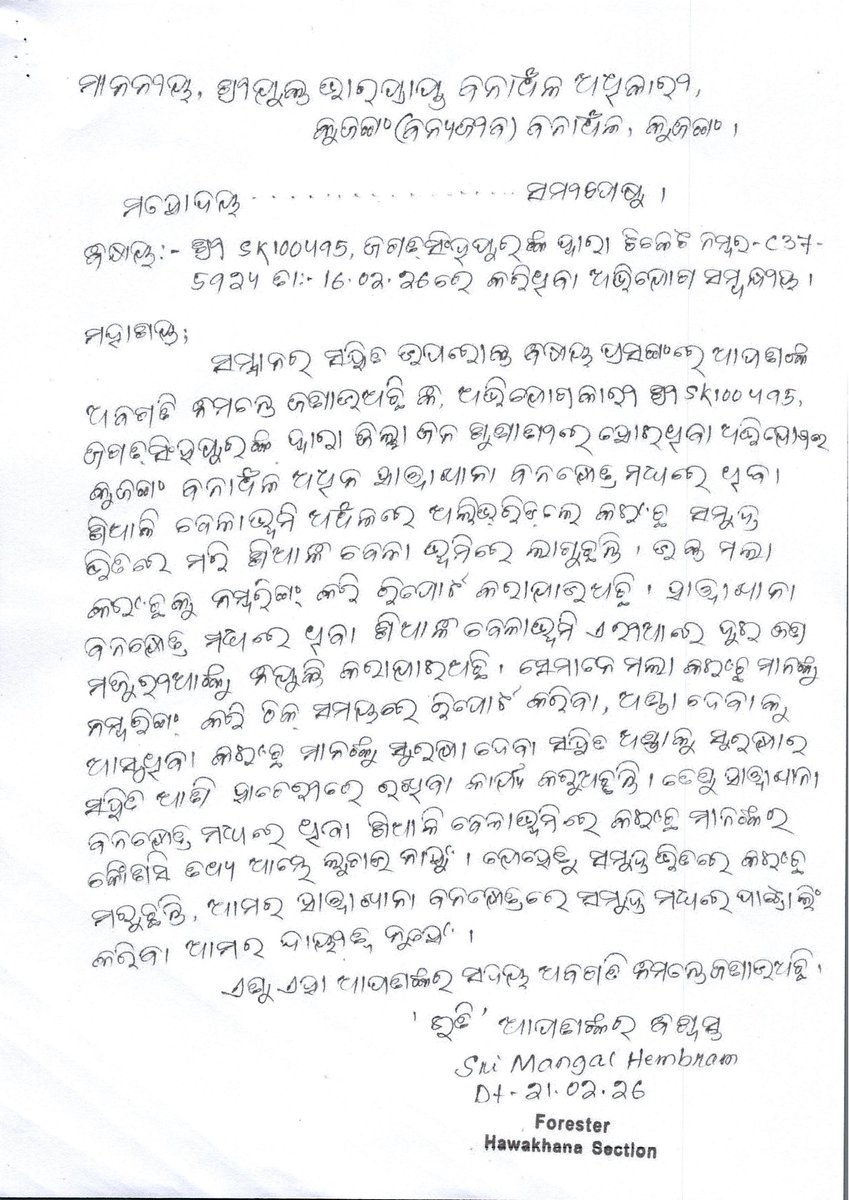 ମାନନୀୟ, ଶ୍ରୀଯୁକ୍ତ ଭାରପ୍ରାପ୍ତ ବନାଞ୍ଚଳ ଅଧିକାରୀ,
କୁଜଙ୍ଗ(ବନ୍ୟଜୀବ) ବନାଞ୍ଚଳ, କୁଜଙ୍ଗ ।
ମହୋଦୟ .................... ସମୀପେଷୁ ।
ବିଷୟ:- ଶ୍ରୀ SK100495, ଜଗତ୍‌ସିଂହପୁରଙ୍କ ଦ୍ୱାରା ଟିକେଟ ନମ୍ବର-C37-
5924 ତା:- 16.02.26ରେ କରିଥିବା ଅଭିଯୋଗ ସମ୍ବନ୍ଧୀୟ ।
ମହାଶୟ;
ସମ୍ମାନର ସହିତ ଉପରୋକ୍ତ ବିଷୟ ପ୍ରସଙ୍ଗରେ ଆପଣଙ୍କ
ଅବଗତି ନିମନ୍ତେ ଜଣାଉଅଛି କି, ଅଭିଯୋଗକାରୀ ଶ୍ରୀ SK100495,
ଜଗତ୍‌ସିଂହପୁରଙ୍କ ଦ୍ୱାରା ଜିଲ୍ଲା ଜନ ଶୁଣାଣୀରେ ହୋଇଥିବା
କୁଜଙ୍ଗ ବନାଞ୍ଚଳ ଅଧିନ ହାୱାଖାନା ବନକ୍ଷେତ୍ର ମଧ୍ୟରେ ଥିବା
ଶିଆଳି ବେଳାଭୂମି ଅଞ୍ଚଳରେ ଅଲିଭରିଡ଼ଲେ କଇଁଛ ସମୁଦ୍ର
ଭିତରେ ମରି ଶିଆଳି ବେଳା ଭୂମିରେ ଲାଗୁଛନ୍ତି । ଉକ୍ତ ମଲା
କଇଁଛକୁ ନମ୍ବରିଙ୍ଗ୍ କରି ରିପୋର୍ଟ କରାଯାଉଅଛି । ହାୱାଖାନା
ବନକ୍ଷେତ୍ର ମଧ୍ୟରେ ଥିବା ଶିଆଳି ବେଳାଭୂମି ଏରିଆରେ ଦୁଇ ଜଣ
ମଜୁରୀଆଙ୍କୁ ନିଯୁକ୍ତି କରାଯାଇଅଛି । ସେମାନେ ମଲା କଇଁଛ ମାନଙ୍କୁ
ନମ୍ବରିଙ୍ଗ୍ କରି ଠିକ୍ ସମୟରେ ରିପୋର୍ଟ କରିବା, ଅଣ୍ଡା ଦେବାକୁ
ଆସୁଥିବା କଇଁଛ ମାନଙ୍କୁ ସୁରକ୍ଷା ଦେବା ସହିତ ଅଣ୍ଡାକୁ ସୁରକ୍ଷାର
ସହିତ ଆଣି ହାଚେରୀରେ ରଖିବା କାର୍ଯ୍ୟ କରୁଅଛନ୍ତି । ତେଣୁ ହାୱାଖାନା
ବନକ୍ଷେତ୍ର ମଧ୍ୟରେ ଥିବା ଶିଆଳି ବେଳାଭୂମିରେ କଇଁଛ ମାନଙ୍କର
କୌଣସି ତଥ୍ୟ ଆମ୍ଭେ ଲୁଚାଇ ନାହୁଁ । ଯେହେତୁ ସମୁଦ୍ର ଭିତରେ କଇଁଛ
ମରୁଛନ୍ତି, ଆମର ହାୱାଖାନା ବନକ୍ଷେତ୍ରରେ ସମୁଦ୍ର ମଧ୍ୟରେ ପାଟ୍ରୋଲିଂ
କରିବା ଆମର ଦାୟୀତ୍ୱ ନୁହେଁ ।
ଏଣୁ ଏହା ଆପଣଙ୍କର ସଦୟ ଅବଗତି ନିମନ୍ତେ ଜଣାଉଅଛି ।
'ଇତି' ଆପଣଙ୍କର ବିଶ୍ୱସ୍ତ
Sri Mangal Hembram
Dt-21.02.26
Forester
Hawakhana Section